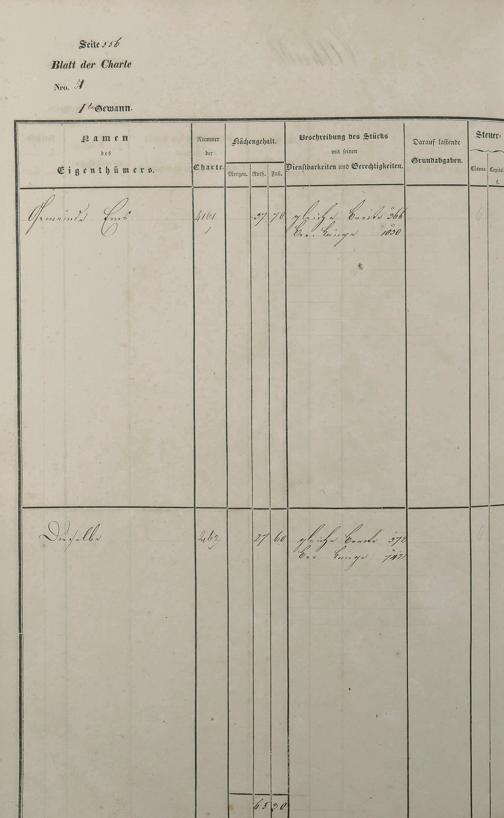 Seite 556
Blatt der Charte
Nro. 4
1te Gewann.
Namen
des
Eigenthümers.
Nummer
der
Charte.
Flächengehalt.
Morgen.
Ruth.
Fuß.
Beschreibung des Stücks
mit seinen
Dienstbarkeiten und Gerechtigkeiten.
Darauf lastende
Grundabgaben.
Steuer-
Classe.
Capital
f.
Gemeinde Ems
37 70
gleiche Breite 366
bei Länge 1030
Dieselbe
27 60
gleiche Breite 372
bei Länge 742
65 30